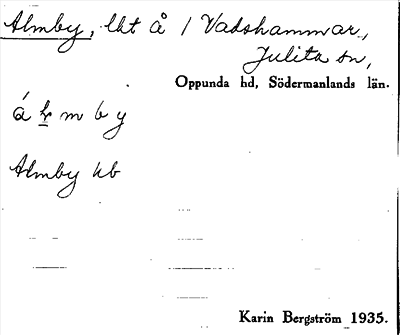 Almby, lht å / Vadshammar,
Julita sn,
Oppunda hd, Södermanlands län.
á m b y
Almby kb
Karin Bergström 1935.